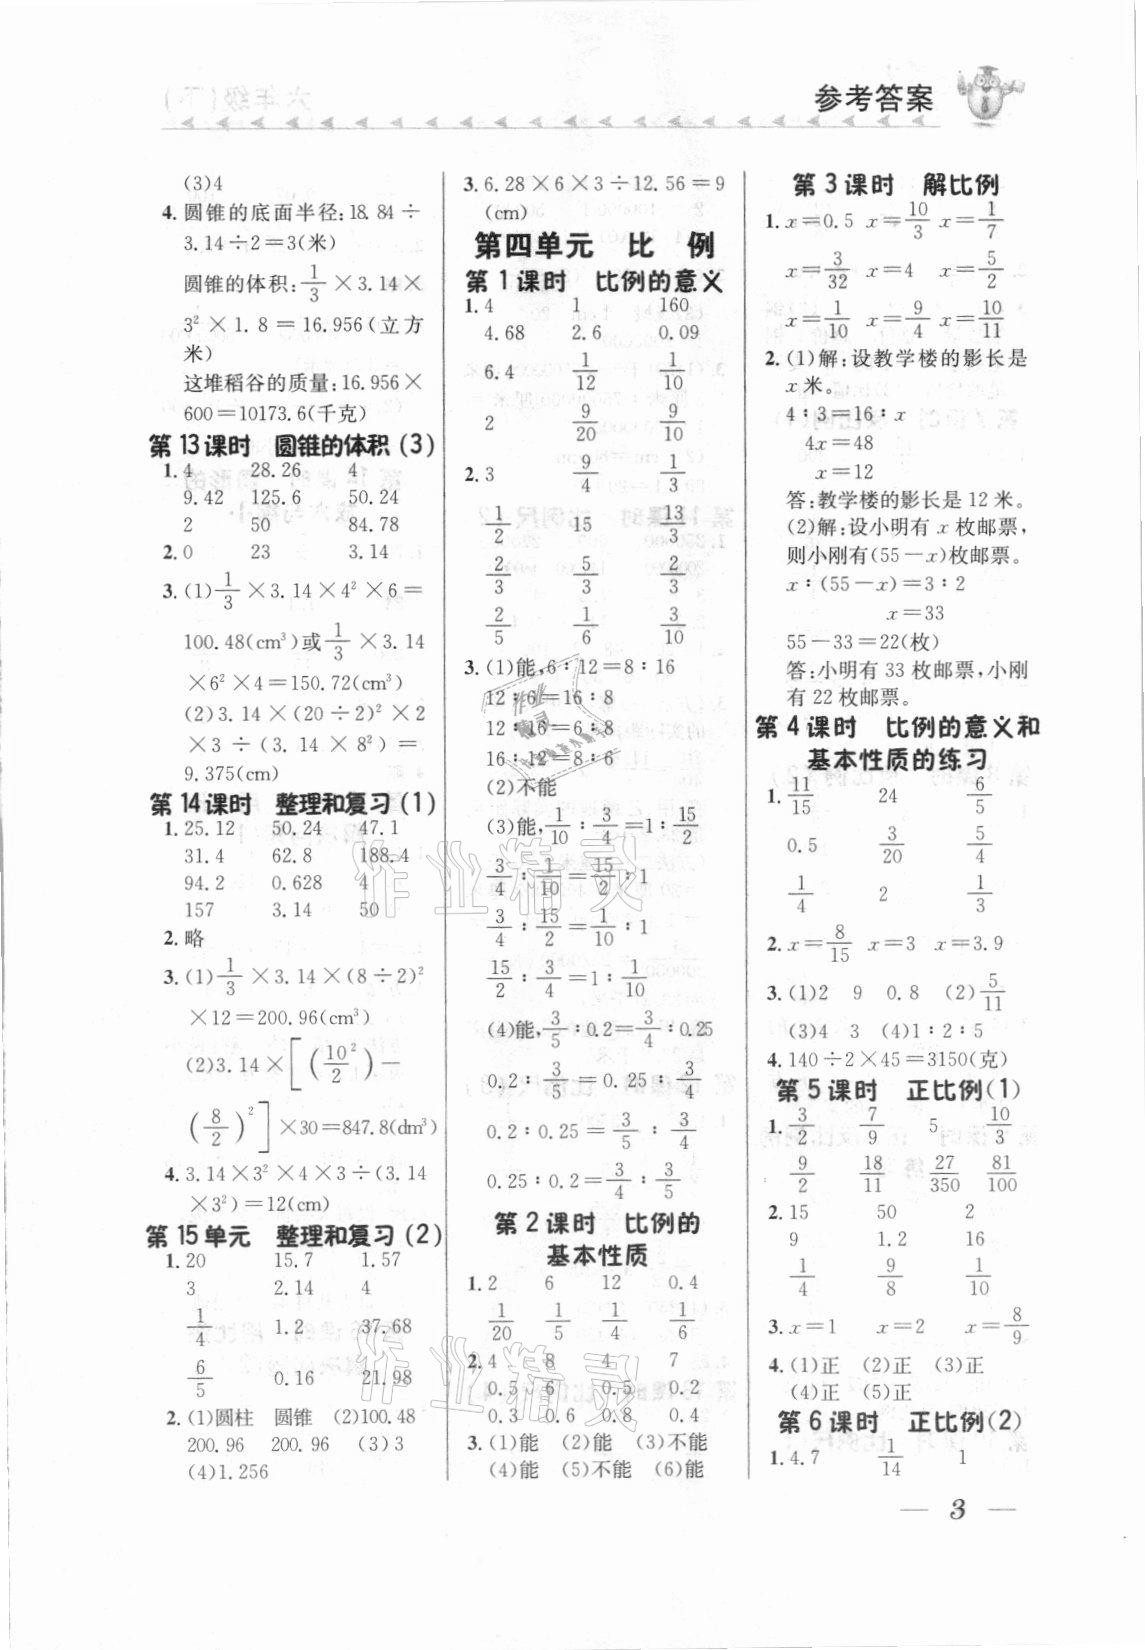 参考答案
(3)4
4. 圆锥的底面半径:18.84÷
3.14÷2=3(米)
圆锥的体积:1/3×3.14×
3²×1.8=16.956(立方
米)
这堆稻谷的质量:16.956×
600=10173.6(千克)
第13课时 圆锥的体积(3)
1. 4 28.26 4
9.42 125.6 50.24
2 50 84.78
2. 0 23 3.14
3. (1)1/3×3.14×4²×6=
100.48(cm³)或1/3×3.14
×6²×4=150.72(cm³)
(2)3.14×(20÷2)²×2
×3÷(3.14×8²)=
9.375(cm)
第14课时 整理和复习(1)
1. 25.12 50.24 47.1
31.4 62.8 188.4
94.2 0.628 4
157 3.14 50
2. 略
3. (1)1/3×3.14×(8÷2)²
×12=200.96(cm³)
(2)3.14×[(10²/2)-
(8/2)²]×30=847.8(dm³)
4. 3.14×3²×4×3÷(3.14
×3²)=12(cm)
第15单元 整理和复习(2)
1. 20 15.7 1.57
3 2.14 4
1/4 1.2 37.68
6/5 0.16 21.98
2. (1)圆柱 圆锥 (2)100.48
200.96 200.96 (3)3
(4)1.256
3. 6.28×6×3÷12.56=9
(cm)
第四单元 比 例
第1课时 比例的意义
1. 4 1 160
4.68 2.6 0.09
6.4 1/12 1/10
2 9/20 9/10
2. 3 9/4 1/3
1/2 15 13/3
2/3 5/3 2/3
2/5 1/6 3/10
3. (1)能,6∶12=8∶16
12∶6=16∶8
12∶16=6∶8
16∶12=8∶6
(2)不能
(3)能,1/10∶3/4=1∶15/2
3/4∶1/10=15/2∶1
3/4∶15/2=1/10∶1
15/2∶3/4=1∶1/10
(4)能,3/5∶0.2=3/4∶0.25
0.2∶3/5=0.25∶3/4
0.2∶0.25=3/5∶3/4
0.25∶0.2=3/4∶3/5
第2课时 比例的
基本性质
1. 2 6 12 0.4
1/20 1/5 1/4 1/6
2. 4 8 4 7
0.5 6 0.5 0.2
0.3 0.6 0.8 0.4
3. (1)能 (2)能 (3)不能
(4)能 (5)不能 (6)能
第3课时 解比例
1. x=0.5 x=10/3 x=1/7
x=3/32 x=4 x=5/2
x=1/10 x=9/4 x=10/11
2. (1)解:设教学楼的影长是
x米。
4∶3=16∶x
4x=48
x=12
答:教学楼的影长是12米。
(2)解:设小明有x枚邮票,
则小刚有(55-x)枚邮票。
x∶(55-x)=3∶2
x=33
55-33=22(枚)
答:小明有33枚邮票,小刚
有22枚邮票。
第4课时 比例的意义和
基本性质的练习
1. 11/15 24 6/5
0.5 3/20 5/4
1/4 2 1/3
2. x=8/15 x=3 x=3.9
3. (1)2 9 0.8 (2)5/11
(3)4 3 (4)1∶2∶5
4. 140÷2×45=3150(克)
第5课时 正比例(1)
1. 3/2 7/9 5 10/3
9/2 18/11 27/350 81/100
2. 15 50 2
9 1.2 16
1/4 9/8 1/10
3. x=1 x=2 x=8/9
4. (1)正 (2)正 (3)正
(4)正 (5)正
第6课时 正比例(2)
1. 4.7 1/14 1
— 3 —
作业精灵
作业精灵